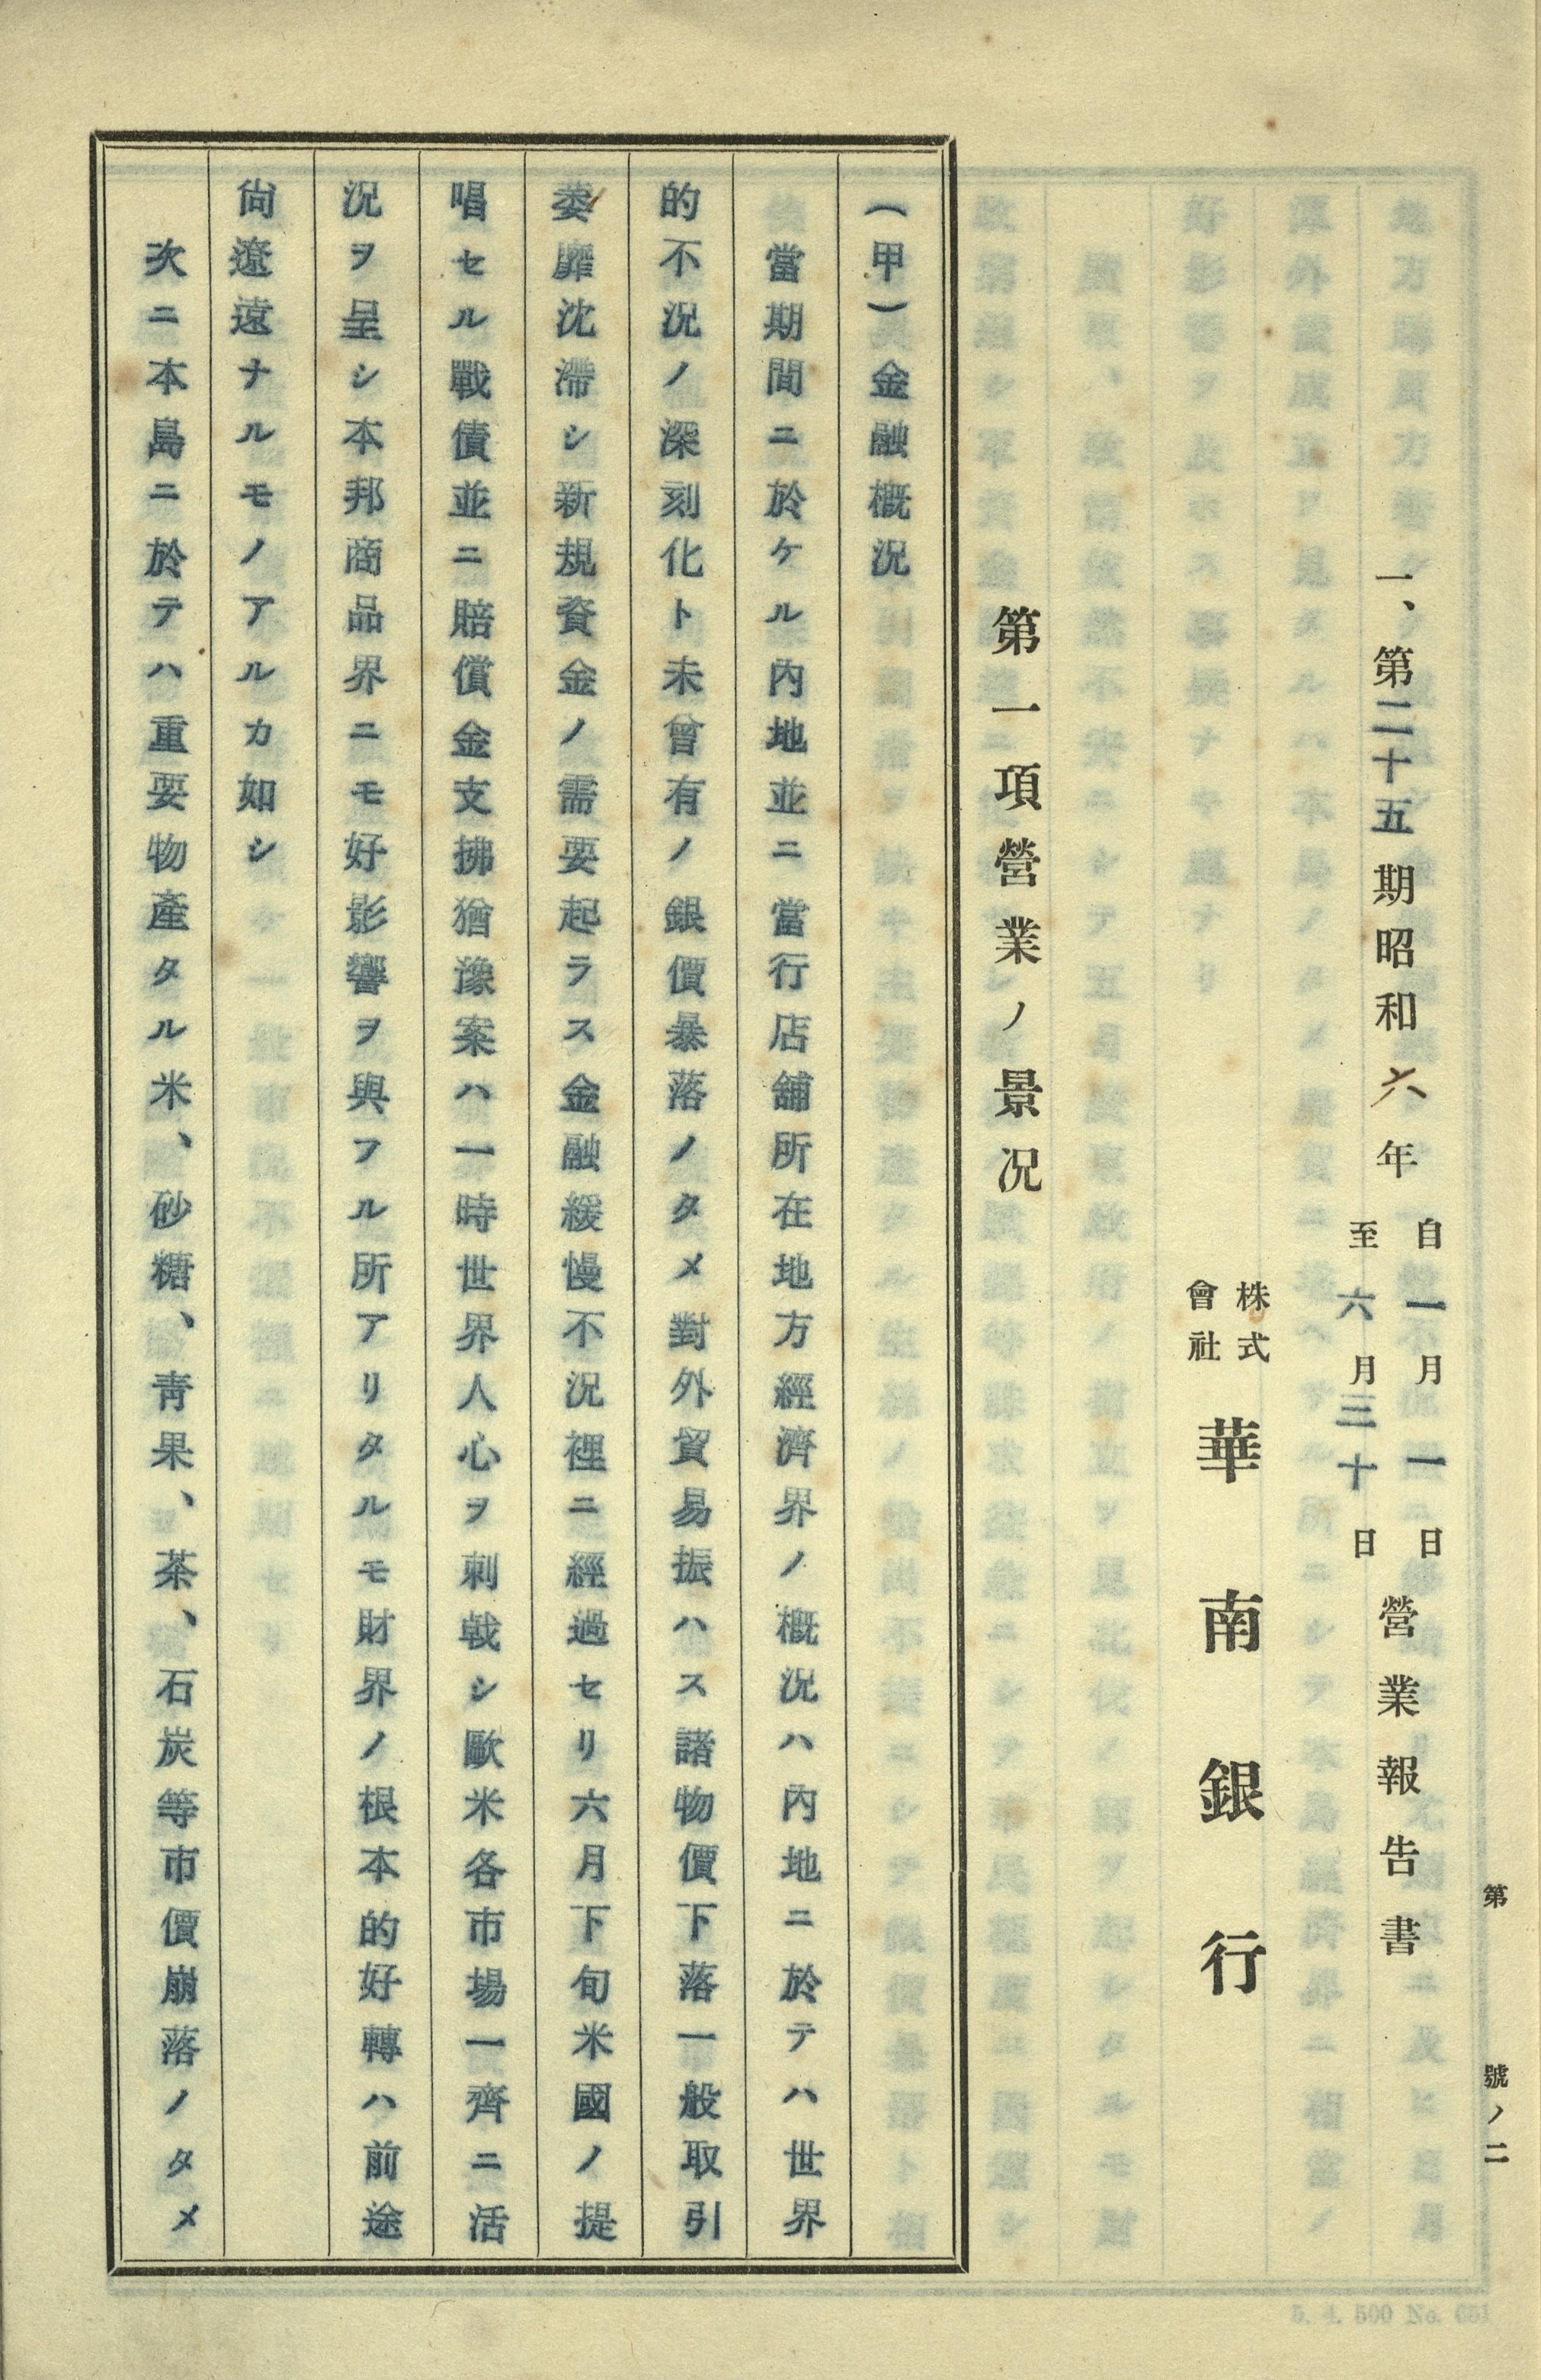 第　號ノ二
一、第二十五期昭和六年自一月一日至六月三十日營業報告書
株式會社華南銀行
第一項營業ノ景況
（甲）金融概況
當期間ニ於ケル內地並ニ當行店舖所在地方經濟界ノ概況ハ內地ニ於テハ世界
的不況ノ深刻化ト未曾有ノ銀價暴落ノタメ對外貿易振ハス諸物價下落一般取引
萎靡沈滯シ新規資金ノ需要起ラス金融緩慢不況裡ニ經過セリ六月下旬米國ノ提
唱セル戰債並ニ賠償金支拂猶豫案ハ一時世界人心ヲ刺戟シ歐米各市場一齊ニ活
況ヲ呈シ本邦商品界ニモ好影響ヲ與フル所アリタルモ財界ノ根本的好轉ハ前途
尙遼遠ナルモノアルカ如シ
次ニ本島ニ於テハ重要物產タル米、砂糖、靑果、茶、石炭等市價崩落ノタメ